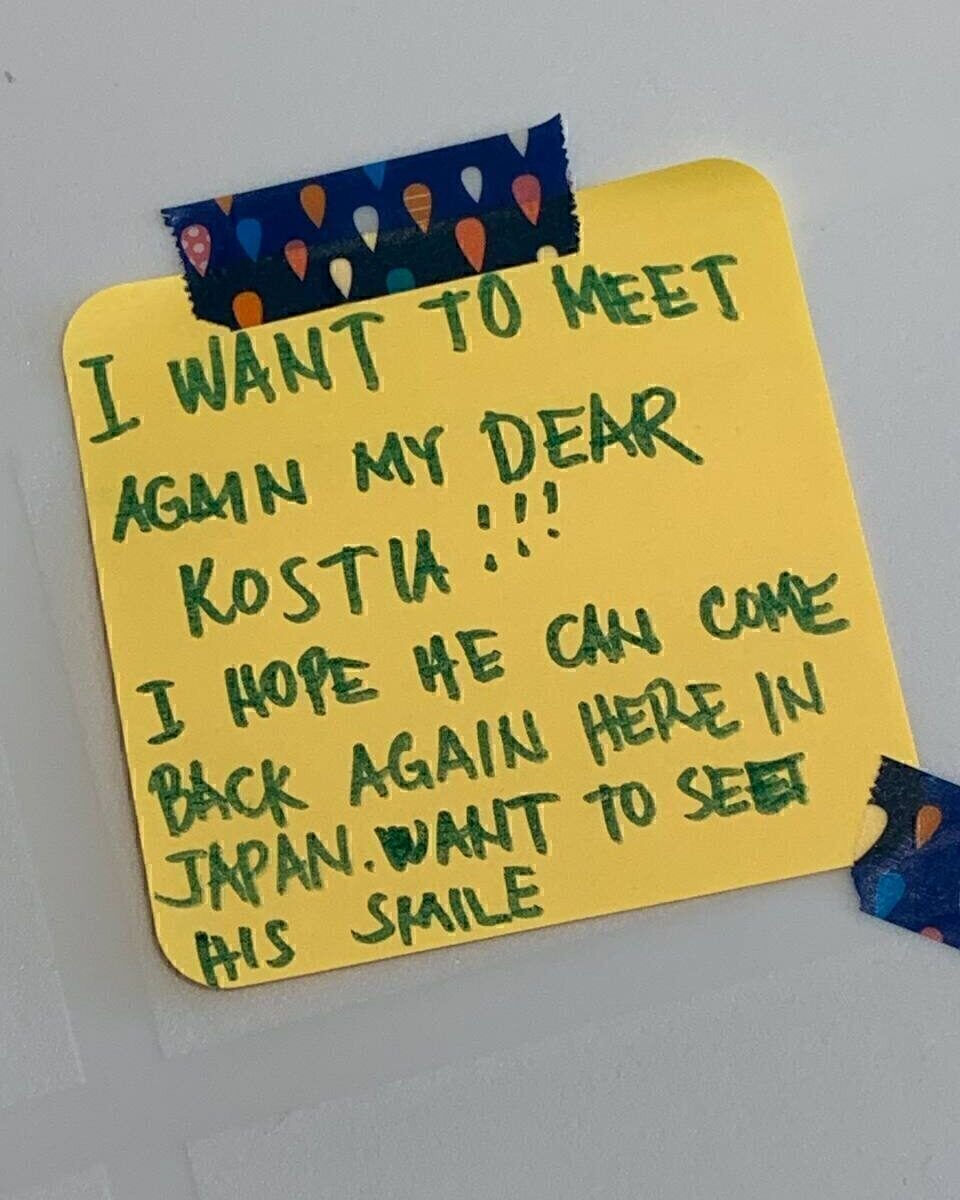 I WANT TO MEET
AGAIN MY DEAR
KOSTIA !!!
I HOPE HE CAN COME
BACK AGAIN HERE IN
JAPAN. WANT TO SEE
HIS SMILE